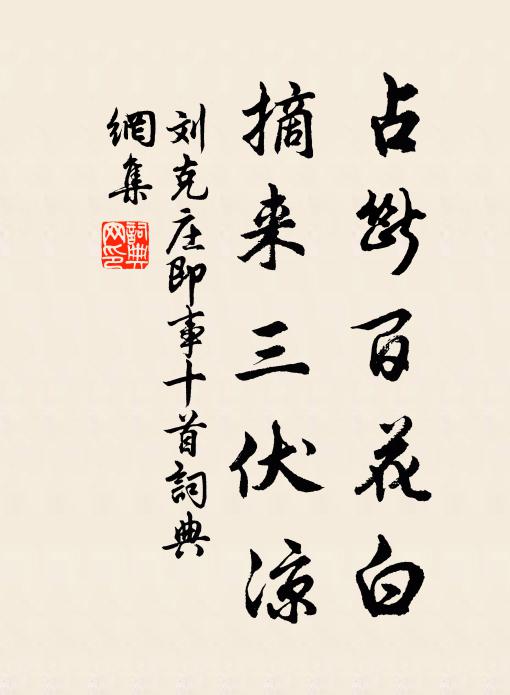 占断百花白
摘来三伏凉
刘克庄即事十首詞典
網集
詞典
网印